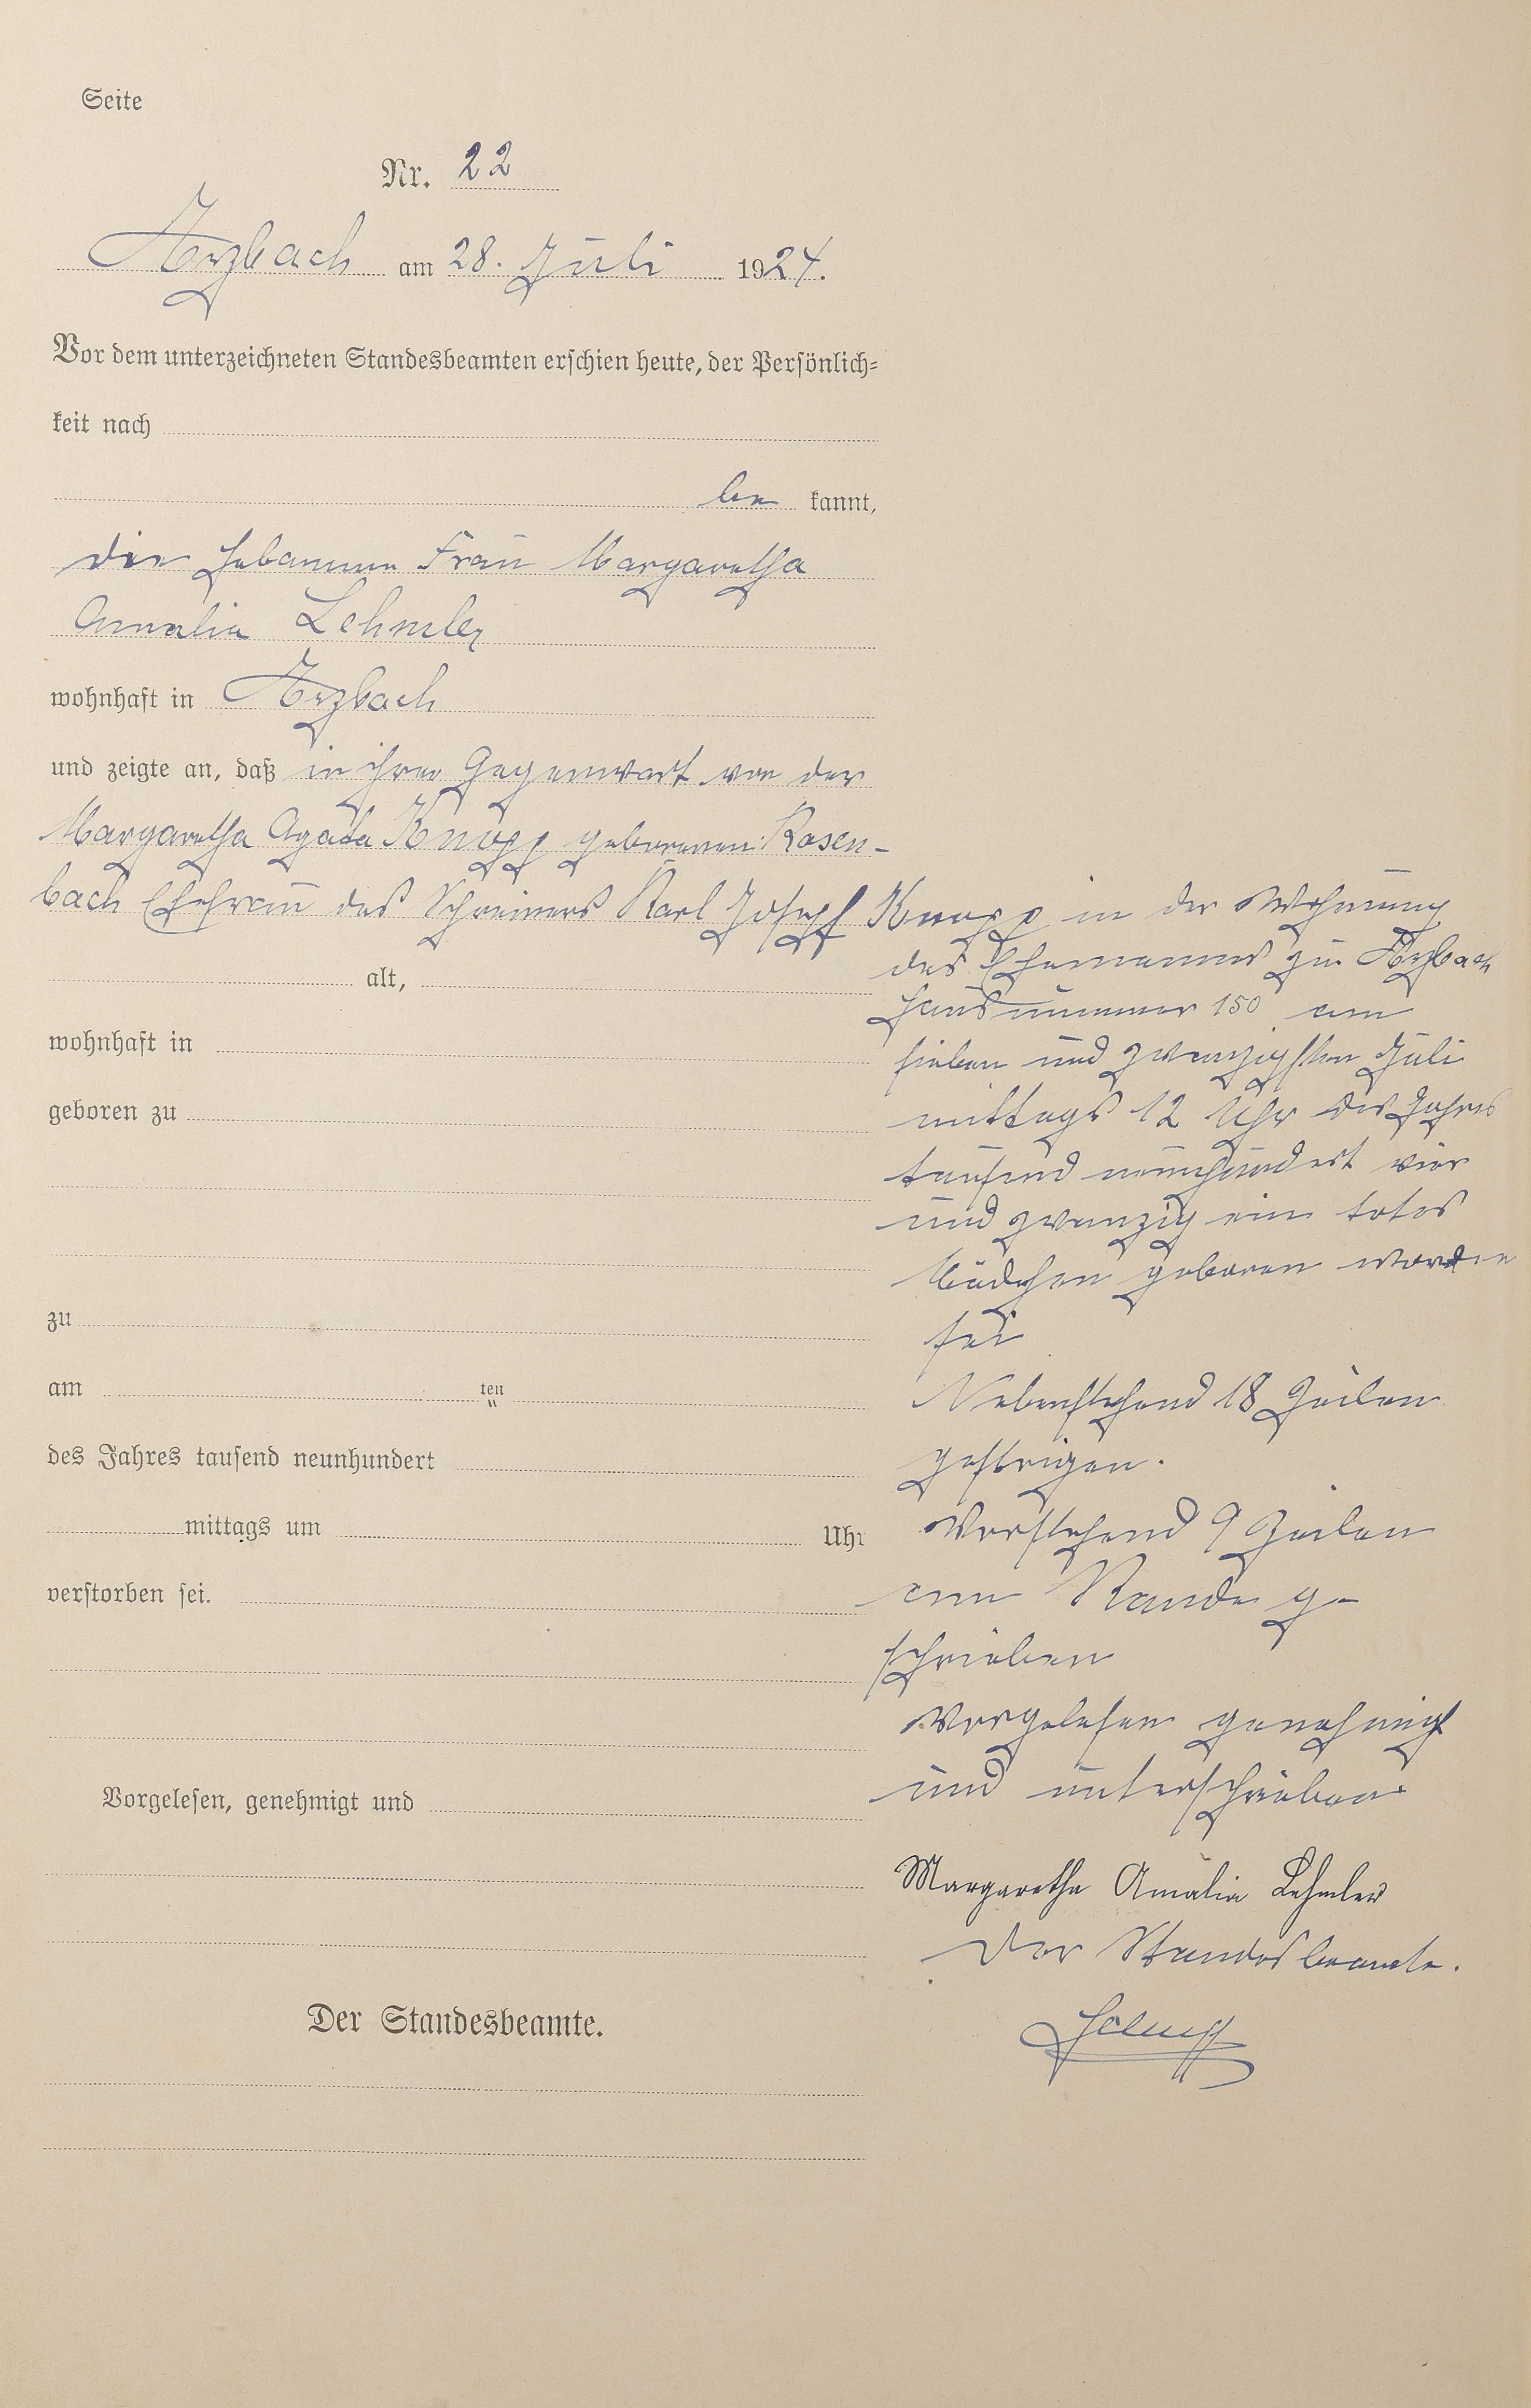 Seite
Nr. 22
Arzbach am 28. Juli 1924.
Vor dem unterzeichneten Standesbeamten erschien heute, der Persönlich=
keit nach
be kannt,
die Hebamme Frau Margaretha
Amalia Lehmler
wohnhaft in Arzbach
und zeigte an, daß in ihrer Gegenwart von der
Margaretha Agata Knopp geborenen Rosen-
bach Ehefrau des Schreiners Karl Joseph Knopp in der Wohnung
des Ehemannes zu Arzbach
Hausnummer 150 am
sieben und zwanzigsten Juli
mittags 12 Uhr des Jahres
tausend neunhundert vier
und zwanzig ein totes
Mädchen geboren worden
sei
Nebenstehend 18 Zeilen
gestrigen.
Vorstehend 9 Zeilen
am Rande ge-
schrieben
Vorgelesen genehmigt
und unterschrieben
Margaretha Amalia Lehmler
Der Standesbeamte.
alt,
wohnhaft in
geboren zu
zu
am ten "
des Jahres tausend neunhundert
mittags um Uhr
verstorben sei.
Vorgelesen, genehmigt und
Der Standesbeamte.